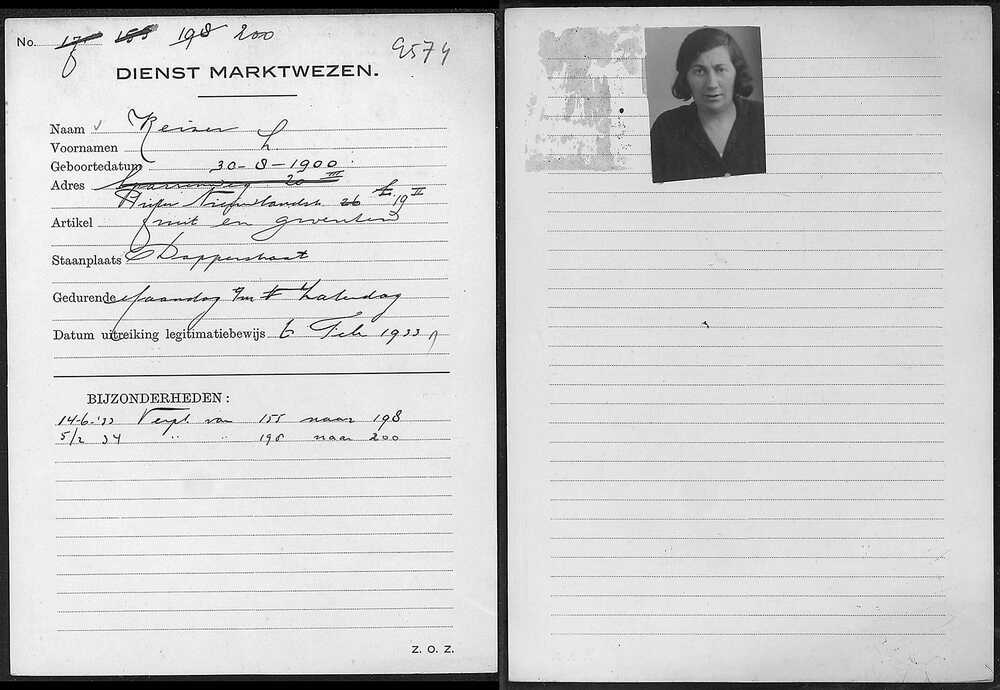 No. 17 155 198 200
9574
DIENST MARKTWEZEN.
Naam Keizer
Voornamen L
Geboortedatum 30-8-1900
Adres Sparrenweg 20 III
Pieter Nieuwlandst. 26 19 II
Artikel fruit en groenten
Staanplaats Dapperstraat
Gedurende Maandag t/m Zaterdag
Datum uitreiking legitimatiebewijs 6 Feb 1933
BIJZONDERHEDEN:
14-6-'33 Verpl. van 155 naar 198
5/2 34 " " 198 naar 200
Z. O. Z.